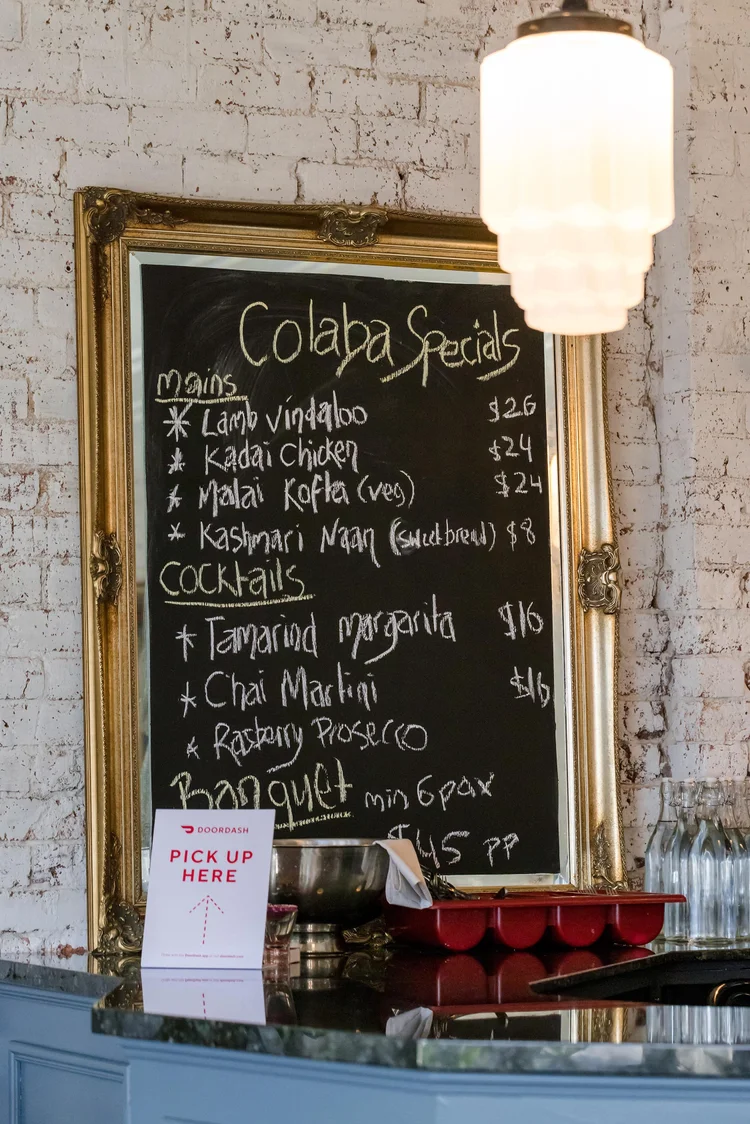 Colaba Specials
Mains
* Lamb Vindaloo $26
* Kadai Chicken $24
* Malai Kofta (veg) $24
* Kashmari Naan (sweetbread) $8
Cocktails
* Tamarind margarita $16
* Chai Martini $16
* Rasberry Prosecco
Banquet min 6 pax
$45 pp
DOORDASH
PICK UP
HERE